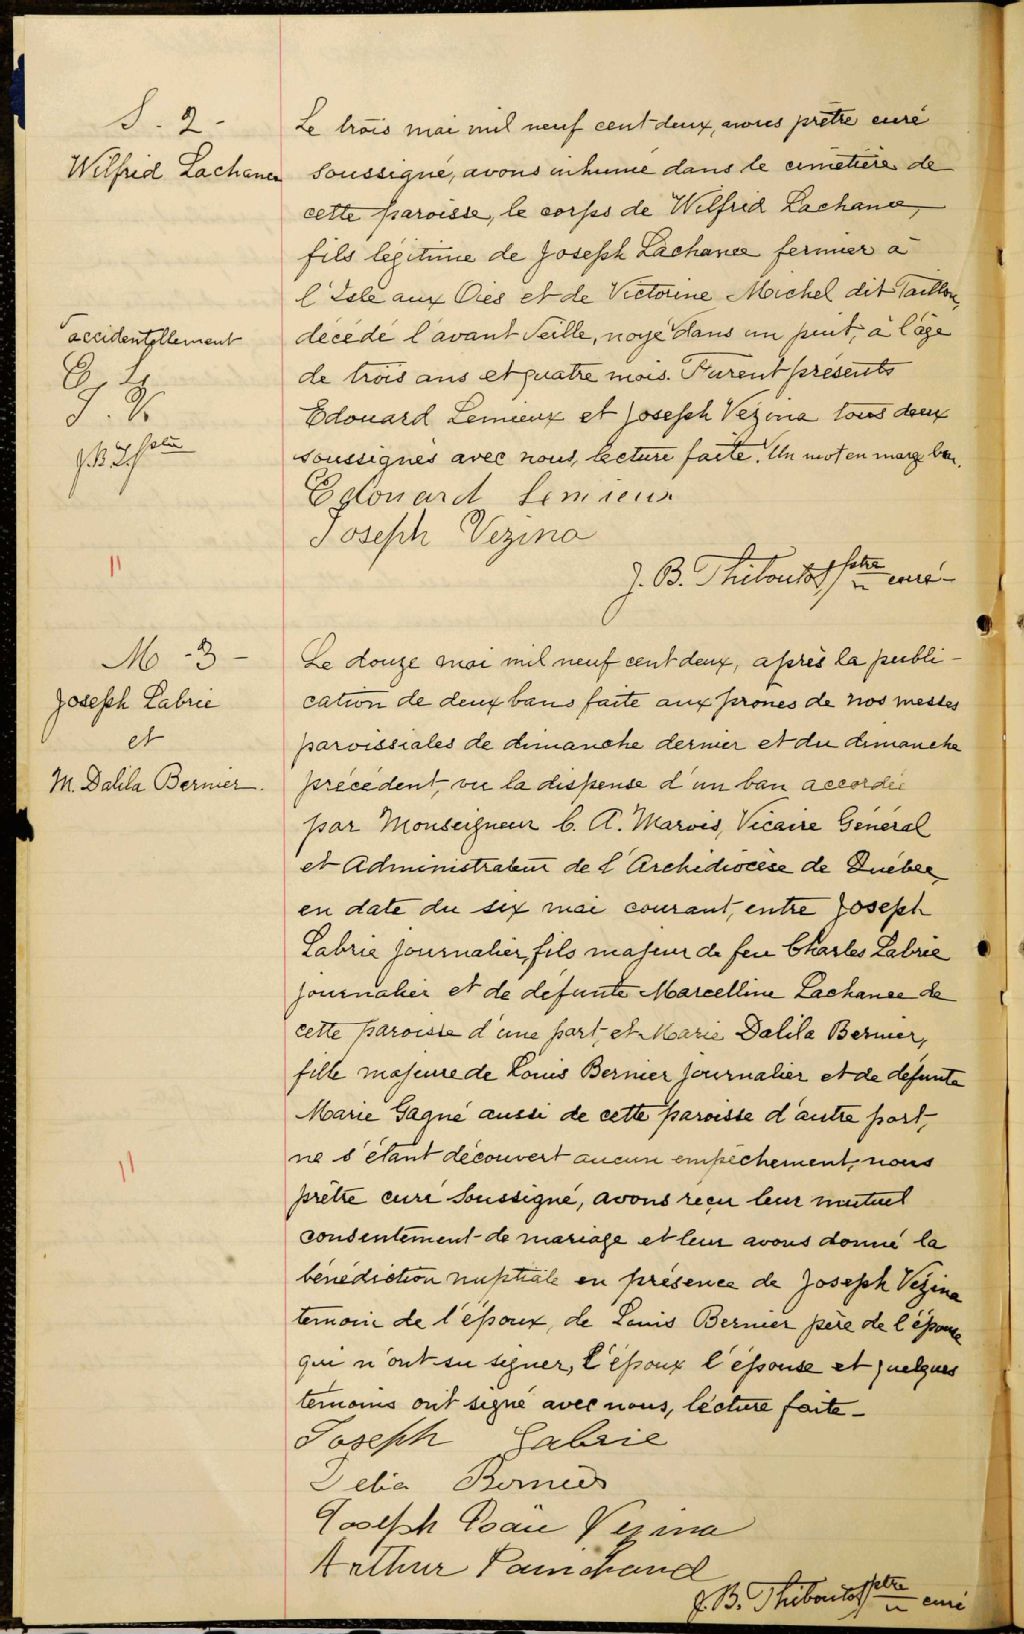 S. 2 -
Wilfrid Lachance
Le trois mai mil neuf cent deux, nous prêtre curé
soussigné, avons inhumé dans le cimetière de
cette paroisse, le corps de Wilfrid Lachance,
fils légitime de Joseph Lachance fermier à
l'Isle aux Oies et de Victorine Michel dit Taillon,
décédé l'avant veille, noyé dans un puit, à l'âge
de trois ans et quatre mois. Furent présents
Edouard Lemieux et Joseph Vezina tous deux
soussignés avec nous, lecture faite. Un mot en marge bon.
accidentellement
E. L.
J. V.
J.B.T. ptre
Edouard Lemieux
Joseph Vezina
J. B. Thiboutot, ptre curé
11
M - 3 -
Joseph Labrie
et
M. Dalila Bernier.
Le douze mai mil neuf cent deux, après la publi-
cation de deux bans faite aux prônes de nos messes
paroissiales de dimanche dernier et du dimanche
précédent, vu la dispense d'un ban accordée
par Monseigneur C. A. Marois, Vicaire Général
et Administrateur de l'Archidiocèse de Québec,
en date du six mai courant, entre Joseph
Labrie journalier, fils majeur de feu Charles Labrie
journalier et de défunte Marcelline Lachance de
cette paroisse d'une part, et Marie Dalila Bernier,
fille majeure de Louis Bernier journalier et de défunte
Marie Gagné aussi de cette paroisse d'autre part,
ne s'étant découvert aucun empêchement, nous
prêtre curé soussigné, avons reçu leur mutuel
consentement de mariage et leur avons donné la
bénédiction nuptiale en présence de Joseph Vézina
temoin de l'époux, de Louis Bernier père de l'épouse
qui n'ont su signer, l'époux l'épouse et quelques
témoins ont signé avec nous, lecture faite -
11
Joseph Labrie
Delia Bernier
Joseph Vezina
Arthur Painchaud
J. B. Thiboutot, ptre curé